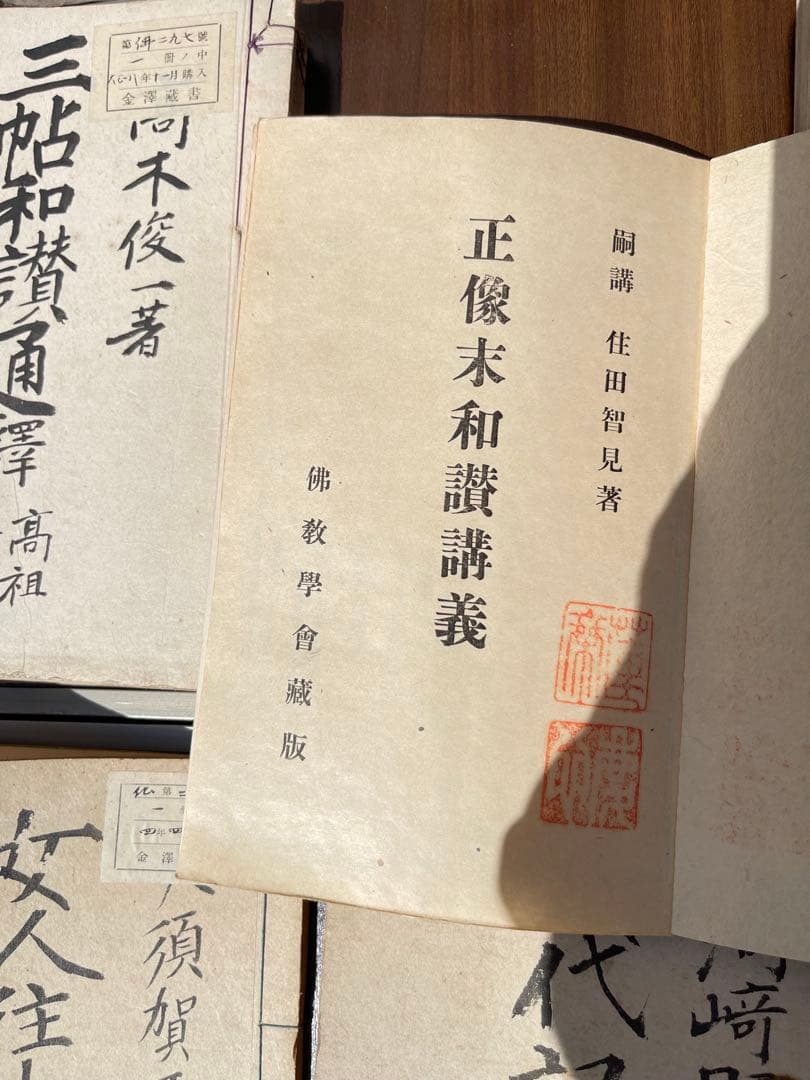 嗣講 住田智見著
正像末和讃講義
佛教學會藏版
第佛二九七號
一冊ノ中
大正八年十一月購入
金澤藏書
木俊一著
三帖和讃通釋
高祖
第
一
四年四
金澤
須賀
女人往
崎
代記